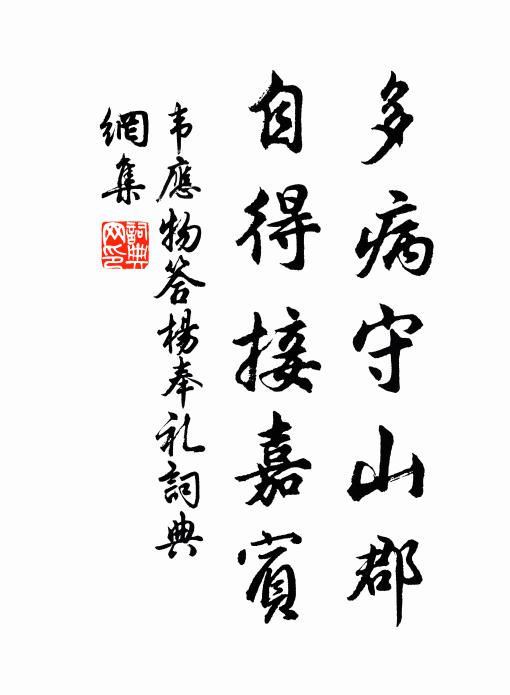 多病守山郡
自得接嘉賓
韦應物答楊奉礼詞典
網集
詞典
网印